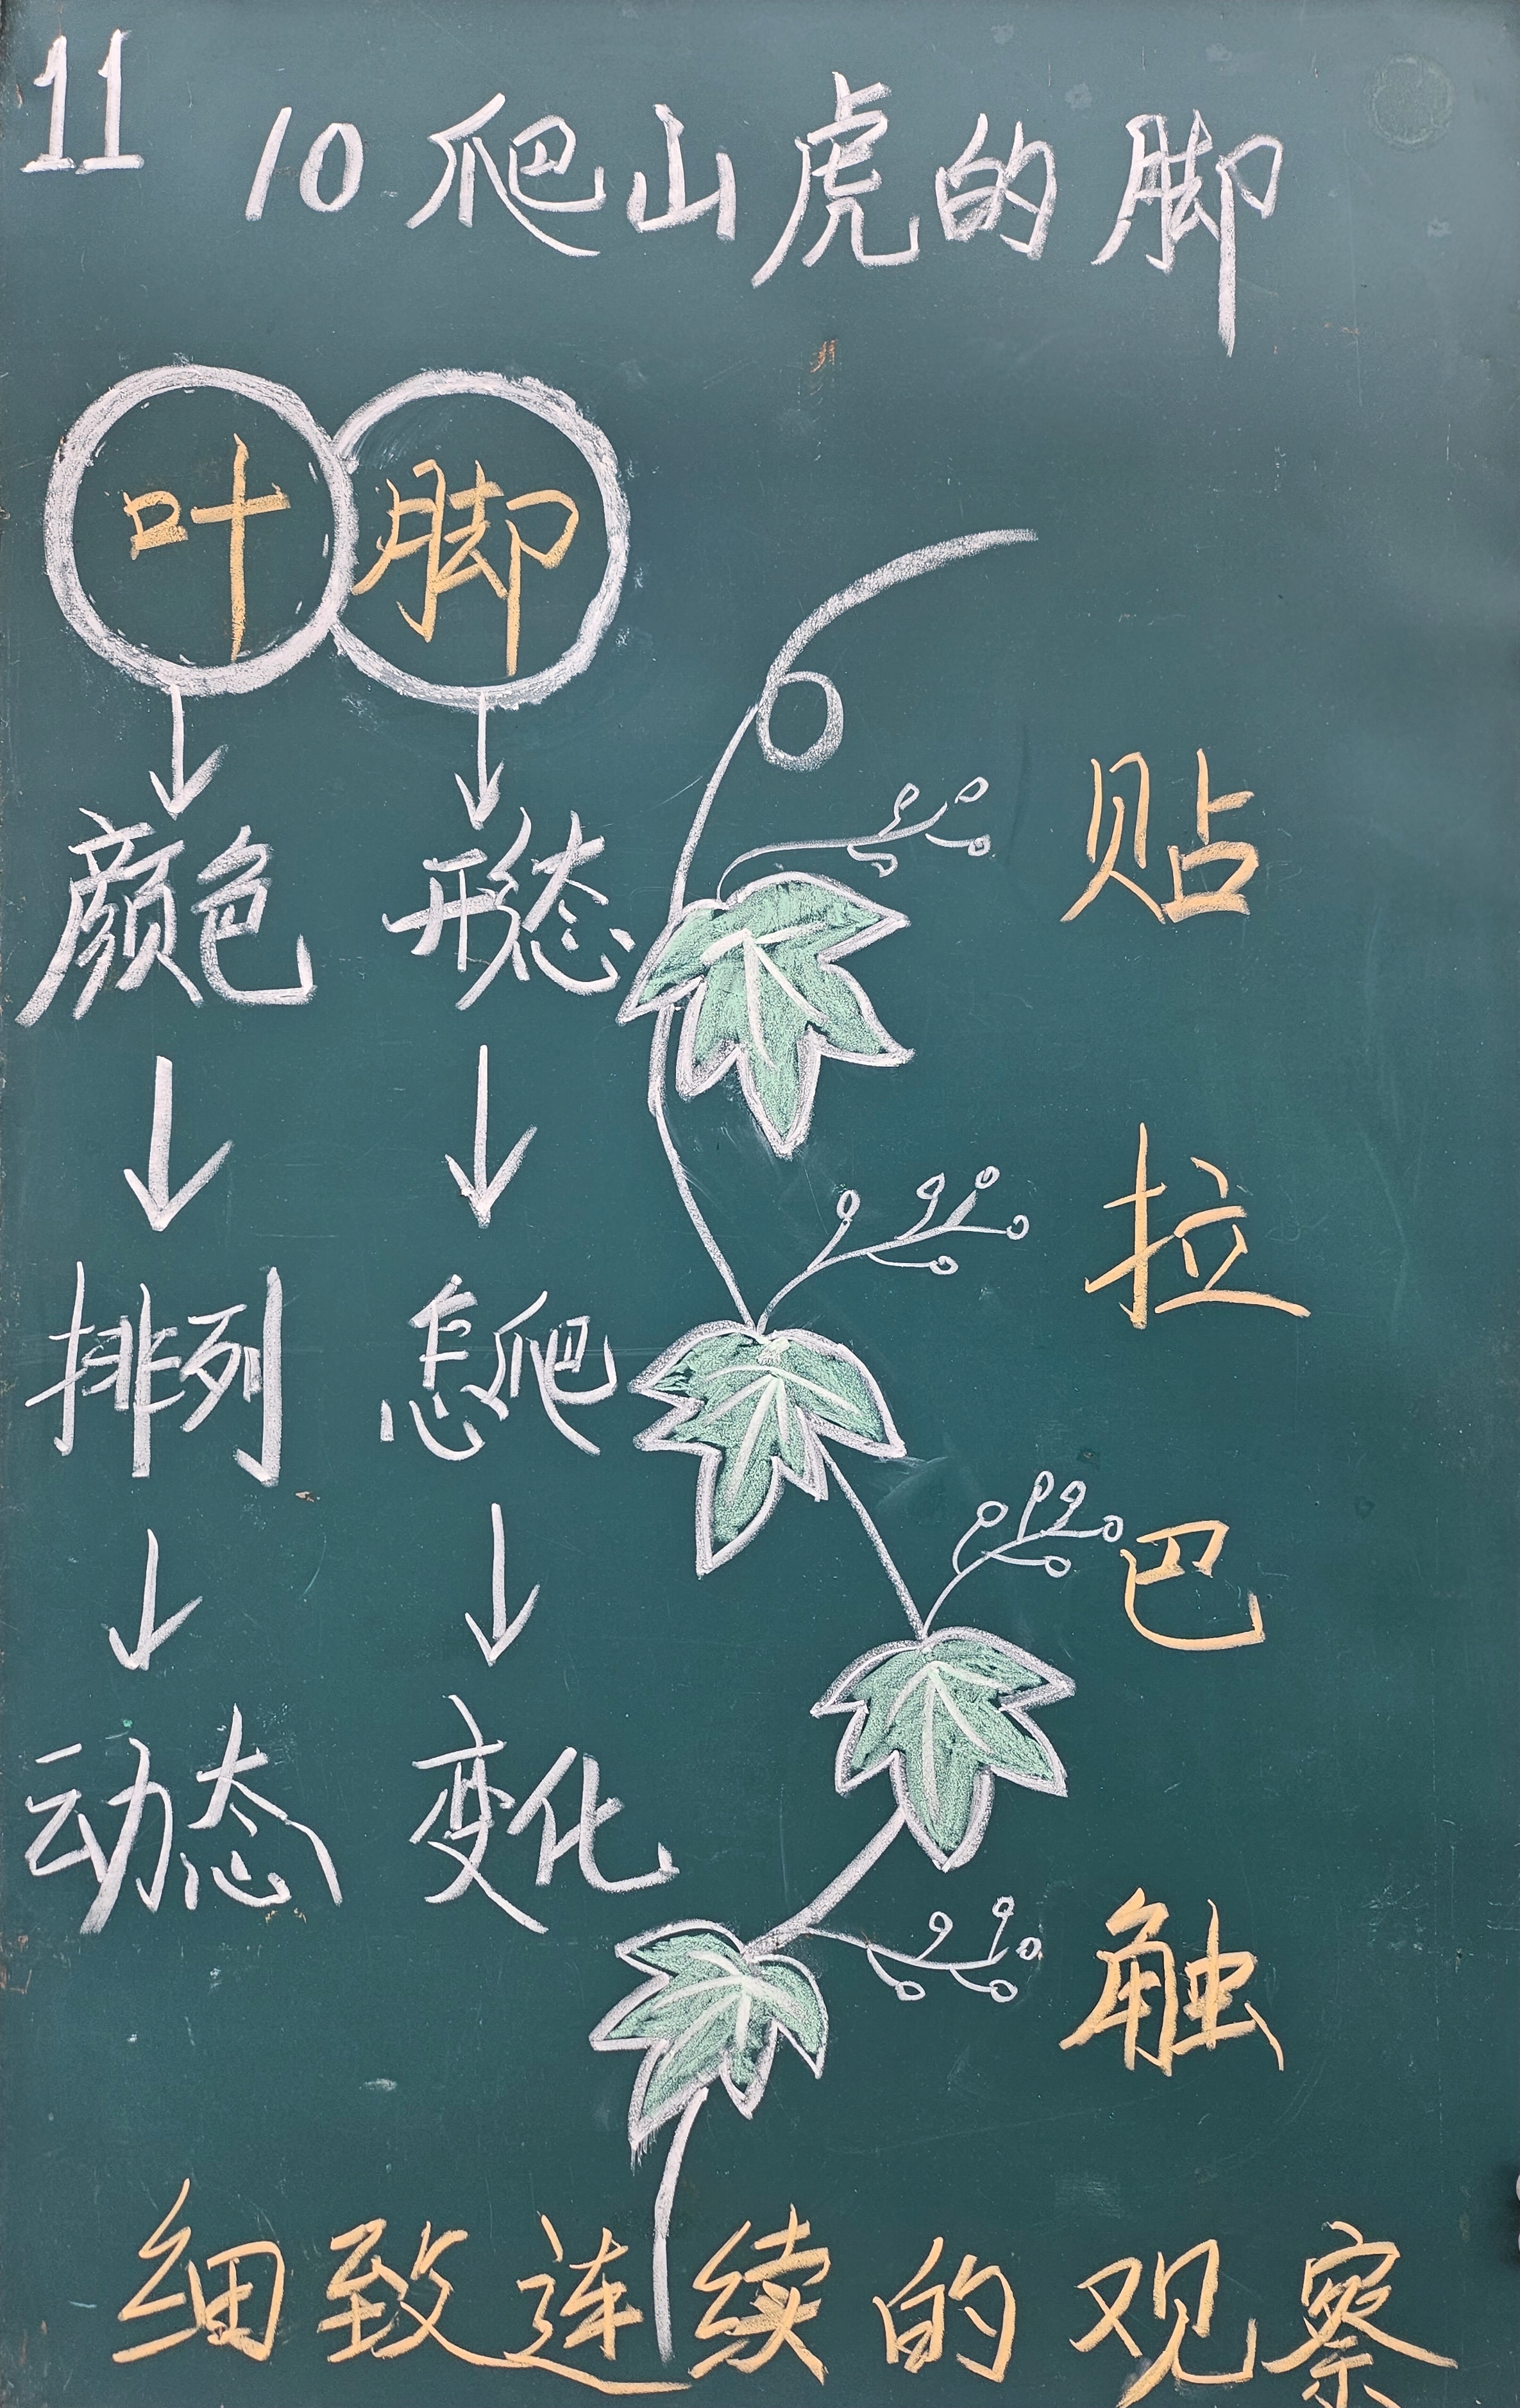 11
10 爬山虎的脚
叶 脚
颜色 形态
排列 怎爬
动态 变化
贴
拉
巴
触
细致连续的观察